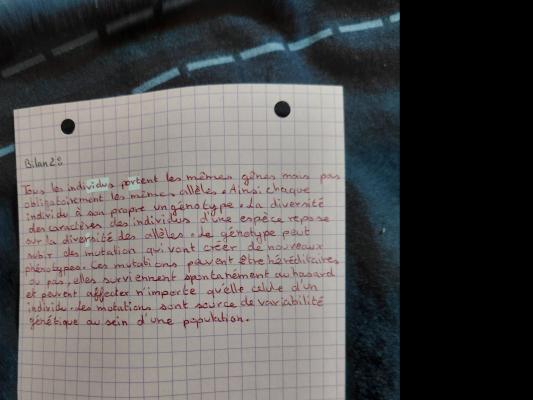 Bilan 2:
Tous les individus portent les mêmes gènes mais pas
obligatoirement les mêmes allèles. Ainsi chaque
individu à son propre un génotype. La diversité
des caractères des individus d'une espèce repose
sur la diversité des allèles. Le génotype peut
subir des mutation qui vont créer de nouveaux
phénotypes. Ces mutations peuvent être héréditaires
ou pas, elles surviennent spontanément au hasard
et peuvent affecter n'importe qu'elle celule d'un
individu. Les mutations sont source de variabilité
génétique au sein d'une population.